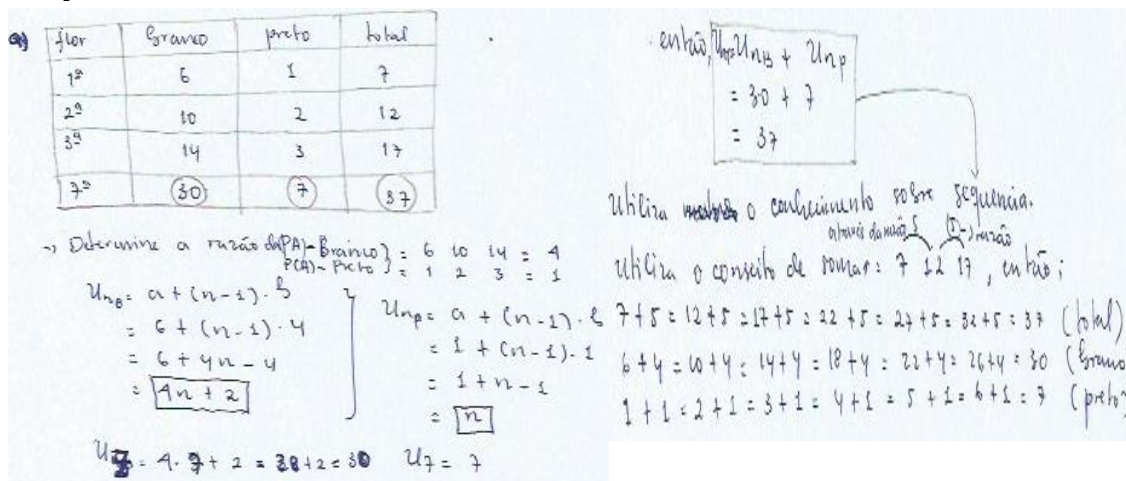 a) flor branco preto total
1ª 6 1 7
2ª 10 2 12
3ª 14 3 17
7ª 30 7 37
→ Determine a razão da (PA)-Branco } = 6 10 14 = 4
P(A)- Preto } = 1 2 3 = 1
UnB = a + (n-1) . b
= 6 + (n-1) . 4
= 6 + 4n - 4
= 4n + 2
UnP = a + (n-1) . b
= 1 + (n-1) . 1
= 1 + n - 1
= n
U7 = 4 . 7 + 2 = 28 + 2 = 30 U7 = 7
então, UnB + UnP
= 30 + 7
= 37
Utiliza o conhecimento sobre sequencia.
através da razão 5 (5)→ razão
Utiliza o conseito de somar: 7 12 17, então;
7+5 = 12+5 = 17+5 = 22+5 = 27+5 = 32+5 = 37 (total)
6+4 = 10+4 = 14+4 = 18+4 = 22+4 = 26+4 = 30 (branco
1+1 = 2+1 = 3+1 = 4+1 = 5+1 = 6+1 = 7 (preto)